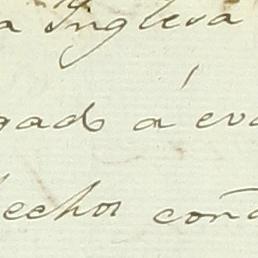 a Inglesa
gado á eva
hechos con